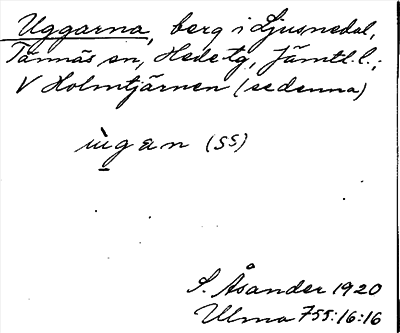 Uggarna, berg i Ljusnedal,
Tännäs sn, Hede tg, Jämtl. l.;
V Holmtjärnen (se denna)
ùgan (SS)
S. Åsander 1920
Ulma 755:16:16